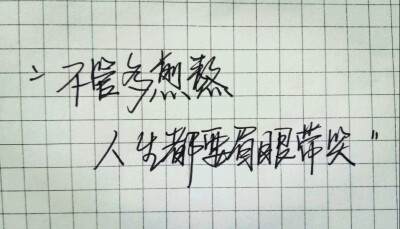 "不管多煎熬
人生都要眉眼带笑"